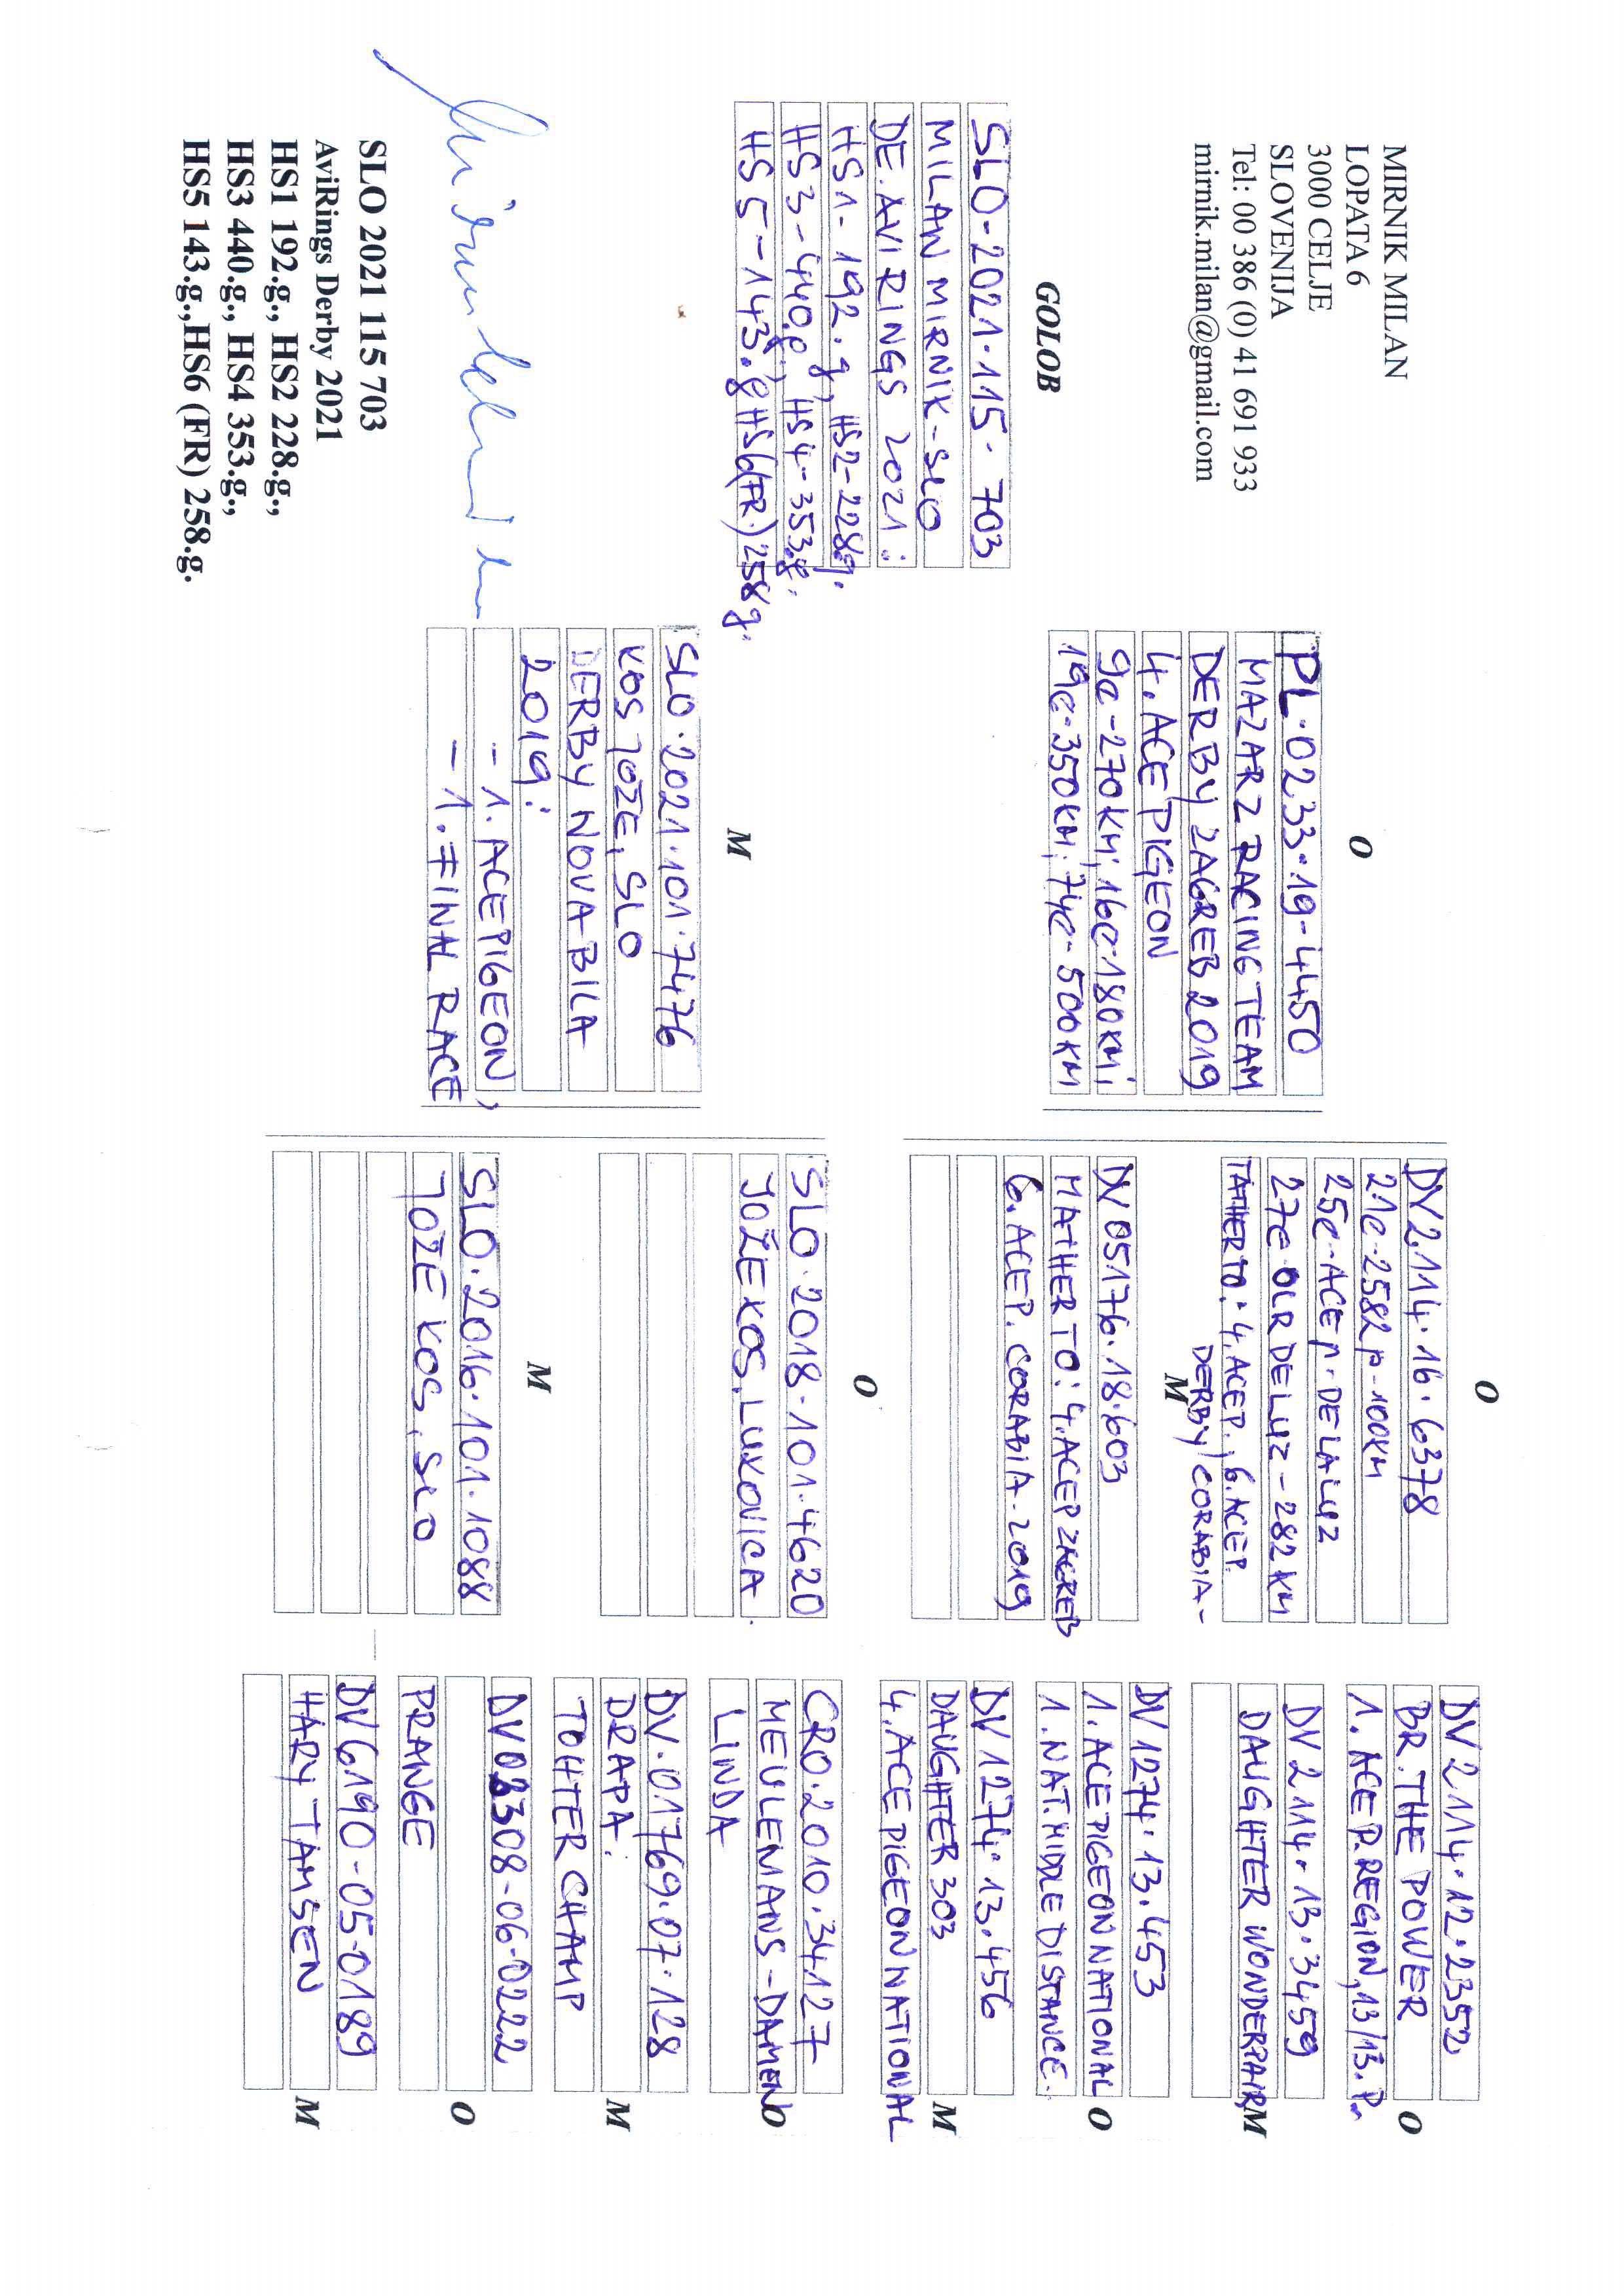 MIRNIK MILAN
LOPATA 6
3000 CELJE
SLOVENIJA
Tel: 00 386 (0) 41 691 933
mirnik.milan@gmail.com
GOLOB
SLO-2021-115-703
MILAN MIRNIK-SLO
DE.AVI RINGS 2021:
HS1-192.g, HS2-228g.
HS3-440.g, HS4-353.g.
HS5-143.g HS6(FR.)258g.
SLO 2021 115 703
AviRings Derby 2021
HS1 192.g., HS2 228.g.,
HS3 440.g., HS4 353.g.,
HS5 143.g.,HS6 (FR) 258.g.
O
PL.0233.19-4450
MAZARZ RACING TEAM
DERBY ZAGREB 2019
4.ACE PIGEON
9e-270KM; 16e-180KM;
19e-350KM; 74e-500KM
M
SLO.2021.101.7476
KOS JOŽE, SLO
DERBY NOVA BILA
2019:
-1.ACE PIGEON,
-1.FINAL RACE
O
DV2.114.16.6378
21e-2582p-100KM
25e-ACE p. DE LA LUZ
27e OLR DE LUZ-282KM
TATHER TO: 4.ACEP., 6.ACEP.
DERBY CORABIA-
M
DV 05176.18.603
MATHER TO: 4.ACEP ZAGREB
6.ACEP. CORABIA-2019
O
SLO.2018-101-4620
JOŽE KOS, LUKOVICA.
M
SLO.2016.101.1088
JOŽE KOS, SLO
DV 2114.12.2352
BR.THE POWER
1.ACE P.REGION,13/13.P.
O
DV 2114.13.3459
DAUGHTER WONDERPAIR,
M
DV 1274.13.453
1.ACE PIGEON NATIONAL
1.NAT.MIDDLE DISTANCE.
O
DV 1274.13.456
DAUGHTER 303
4.ACE PIGEON NATIONAL
M
CRO.2010.34127
MEULEMANS-DAMEN
LINDA
O
DV.01769.07.128
DRAPA.
TOHTER CHAMP
M
DV 03308-06-0222
PRANGE
O
DV 6190-05-0189
HARY TAMSEN
M